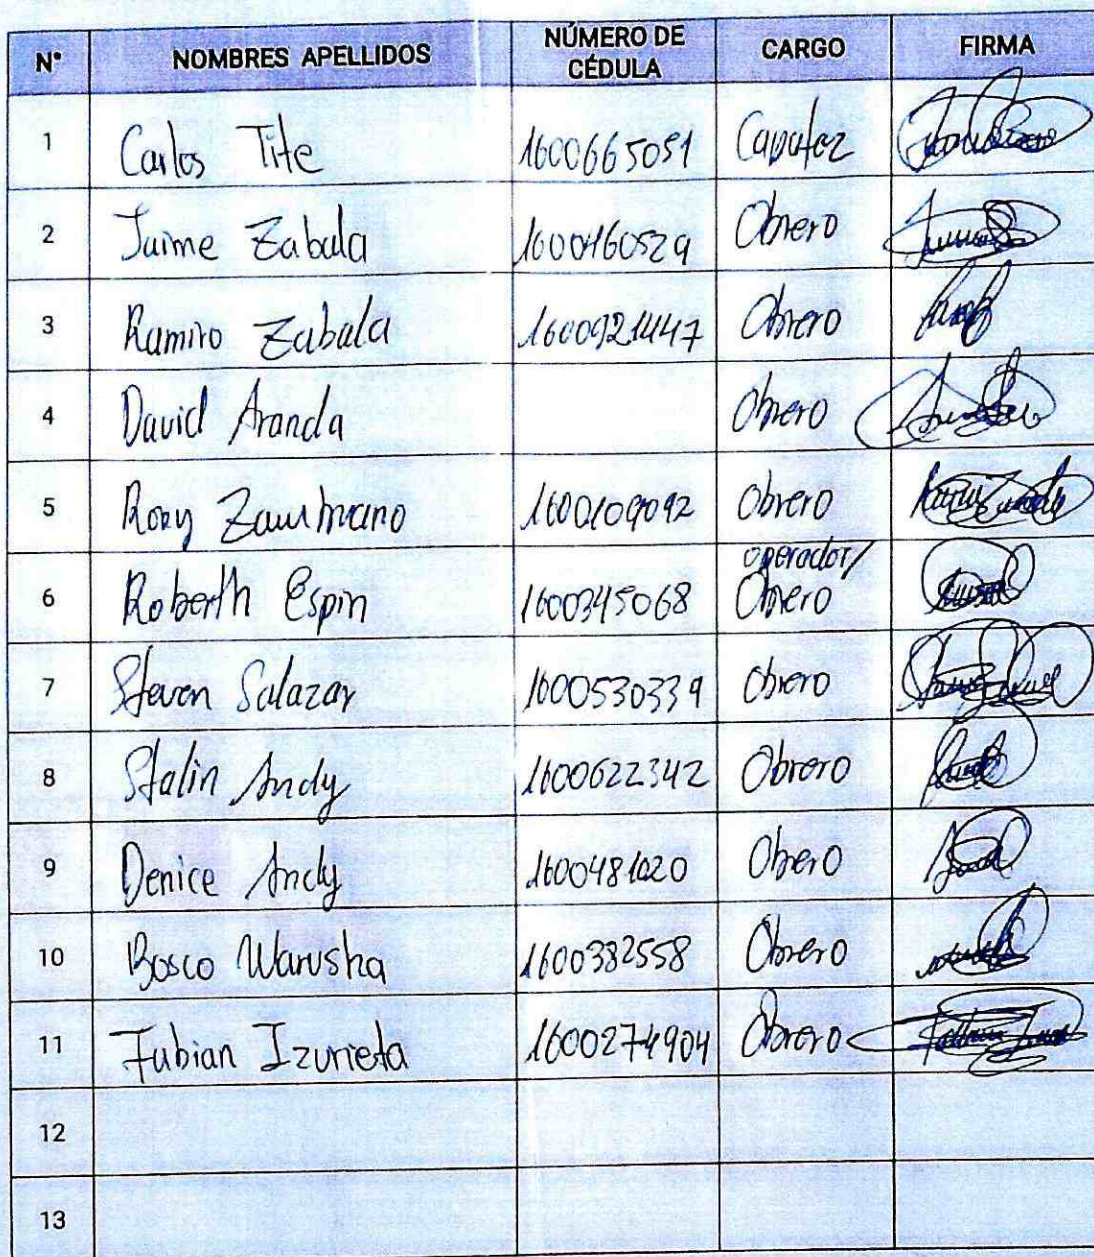 N° NOMBRES APELLIDOS NÚMERO DE CÉDULA CARGO FIRMA
1 Carlos Tite 1600665051 Capataz
2 Jaime Zabala 1600460529 Obrero
3 Ramiro Zabala 1600921447 Obrero
4 David Aranda Obrero
5 Rony 1600109092 Obrero
6 Roberth Espin 1600345068 operador/ Obrero
7 Steven Salazar 1600530339 Obrero
8 Stalin Andy 1600622342 Obrero
9 Denice Andy 1600481020 Obrero
10 Bosco Warusha 1600382558 Obrero
11 Fabian Izurieta 1600274904 Obrero
12
13